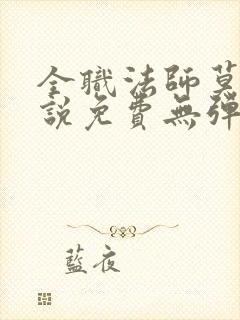 全職法師莫
說免費無彈
藍夜